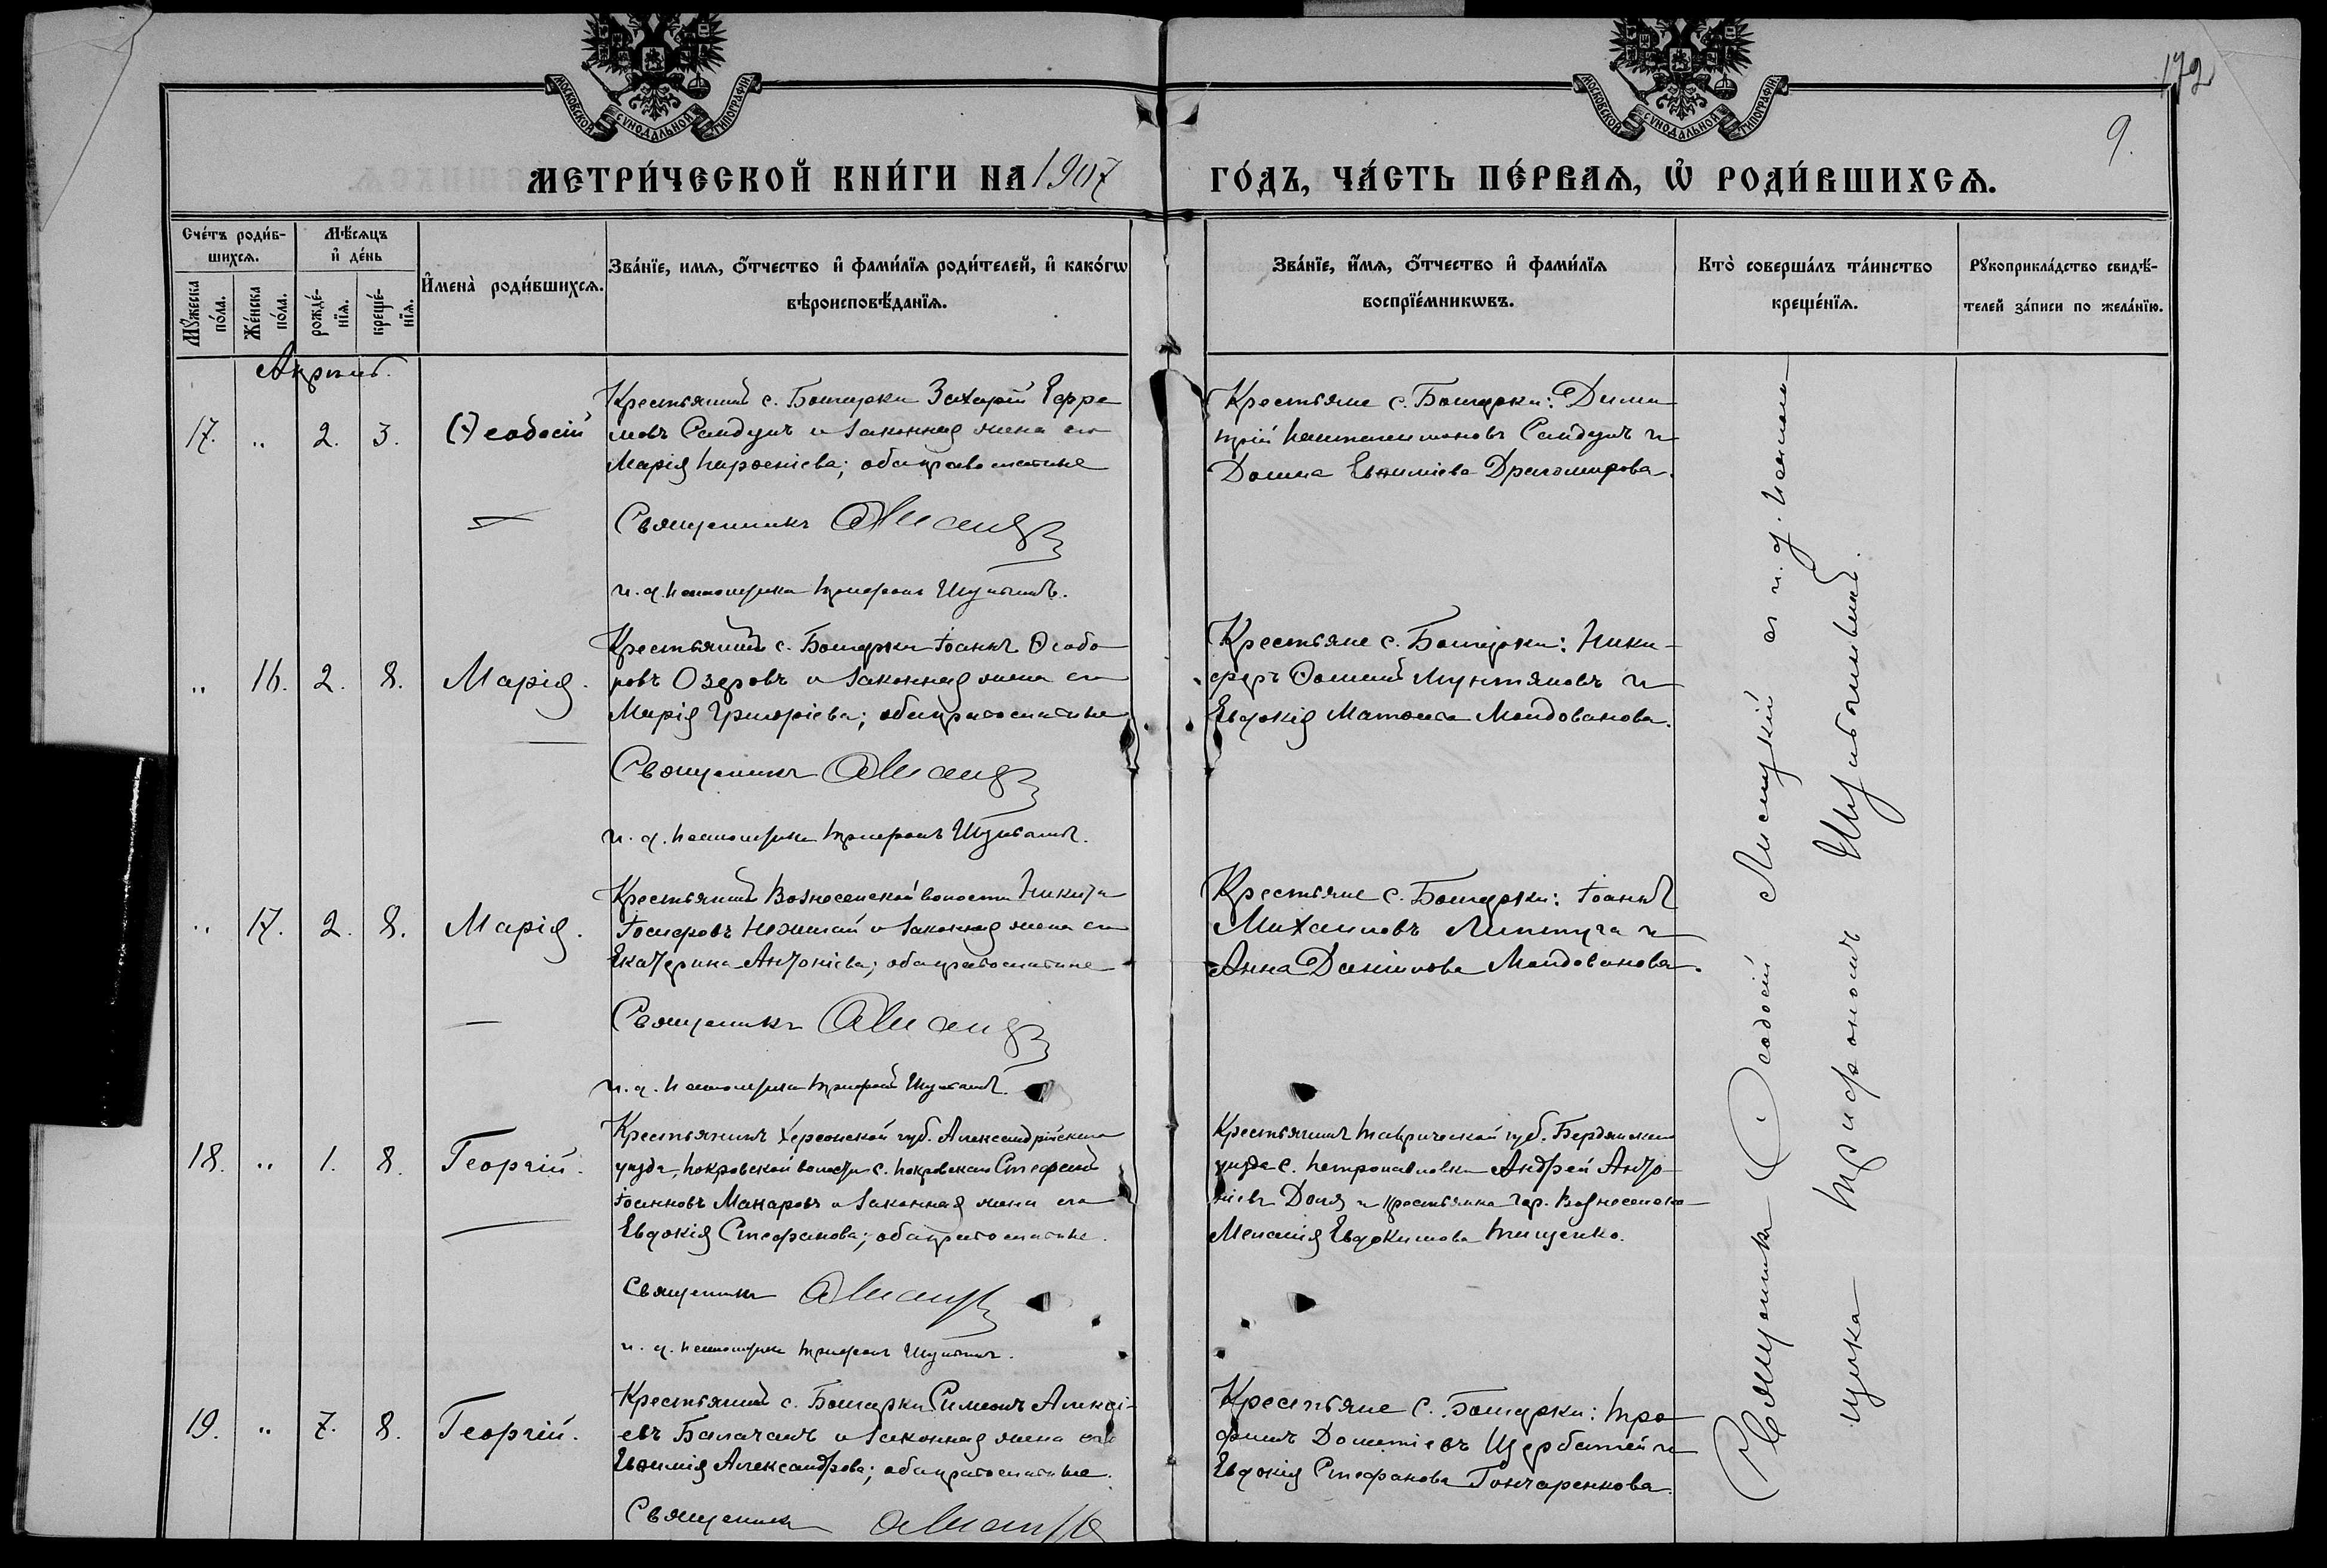 МОСКОВСКОЙ СѴНОДАЛЬНОЙ ТИПОГРАФІИ
МОСКОВСКОЙ СѴНОДАЛЬНОЙ ТИПОГРАФІИ
172
9.
МЕТРИ́ЧЕСКОЙ КНИ́ГИ НА 1907 ГО́ДЪ, ЧА́СТЬ ПЕ́РВАѦ, Ѡ҆ РОДИ́ВШИХСѦ.
Сче́тъ роди́в-
шихсѧ.
Мꙋ́жеска по́ла.
Же́нска по́ла.
Мѣ́сѧцъ
и҆ де́нь
рожде́-
нїѧ.
креще́-
нїѧ.
И҆мена̀ роди́вшихсѧ.
Зва́нїе, имѧ, ѻ҆́тчество и҆ фами́лїѧ роди́телей, и҆ како́гѡ
вѣроисповѣ́данїѧ.
Зва́нїе, и҆́мѧ, ѻ҆́тчество и҆ фами́лїѧ
воспрїе́мникѡвъ.
Кто̀ соверша́лъ та́инство
креще́нїѧ.
Рꙋкоприкла́дство свидѣ́-
телей за́писи по жела́нїю.
Апрель.
17. „ 2. 3. Ѳеодосій
Крестьянинъ с. Боштарки Захарій Ефре
мовъ Сандулъ и законная жена его
Марія Парѳеніева; оба православные
Священникъ
и. д. псаломщика Трифонъ
Крестьяне с. Боштарки: Дими
трій Пантелимоновъ Сандулъ и
Домна Евѳиміева Драгомирова.
„ 16. 2. 8. Марія.
Крестьянинъ с. Боштарки Іоаннъ Ѳеодо
ровъ Озеровъ и законная жена его
Марія Григоріева; оба православные
Священникъ
и. д. псаломщика Трифонъ
Крестьяне с. Боштарки: Ники-
форъ Ѳоминъ Мунтяновъ и
Евдокія Матѳеева Молдованова.
„ 17. 2. 8. Марія.
Крестьянинъ Вознесенской волости Никита
Іосифовъ и законная жена его
Екатерина Антоніева; оба православные
Священникъ
и. д. псаломщика Трифонъ
Крестьяне с. Боштарки: Іоаннъ
Михаиловъ Липтуга и
Анна Даніилова Молдованова.
18. „ 1. 8. Георгій.
Крестьянинъ Херсонской губ. Александрійскаго
уезда, Покровской волости с. Покровскаго Стефанъ
Іоанновъ Макаровъ и законная жена его
Евдокія Стефанова; оба православные.
Священникъ
и. д. псаломщика Трифонъ
Крестьянинъ Таврической губ. Бердянскаго
уезда с. Петропавловки Андрей Анто-
ніевъ Доля и крестьянка гор. Вознесенска
Меланія Евдокимова Тищенко.
19. „ 7. 8. Георгій.
Крестьянинъ с. Боштарки Симеонъ Алексі-
евъ Балачанъ и законная жена его
Евѳимія Александрова; оба православные.
Священникъ
Крестьяне с. Боштарки: Тро
фимъ Дометіевъ Щербатей и
Евдокія Стефанова Гончаренкова.
Священникъ Ѳеодосій Лисицкій съ и. д. псалом-
щика Трифономъ